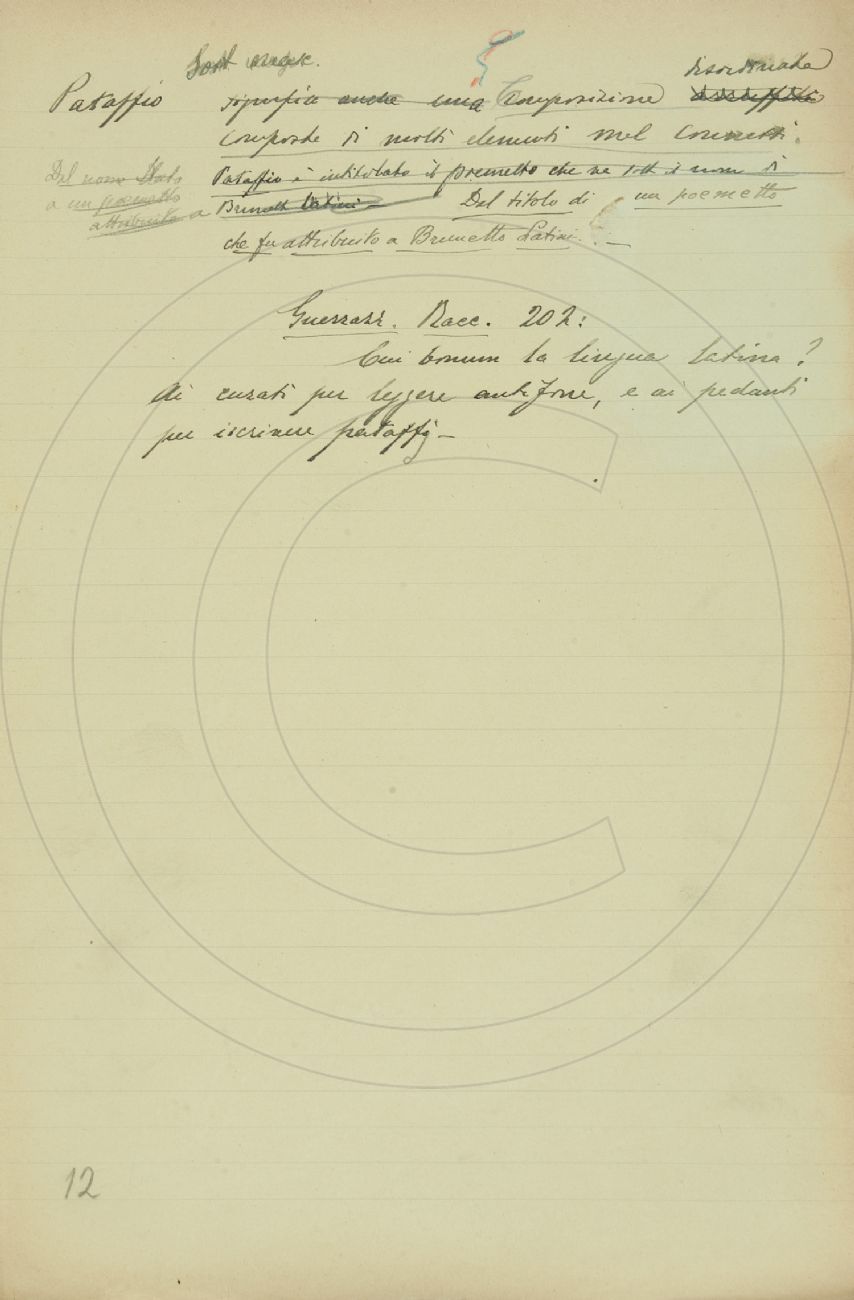 Sost. masc.
disordinata
Pataffio significa anche una Composizione
composta di molti elementi mal connessi.
Dal nome
a un poemetto
attribuito a
Pataffio è intitolato il poemetto che va sott il nome di
Brunetto Latini – Dal titolo di un poemetto
che fu attribuito a Brunetto Latini. –
Guerrazzi. Racc. 202:
Cui bonum la lingua latina?
Ai curati per leggere antifone, e ai pedanti
per iscrivere pataffj –
12